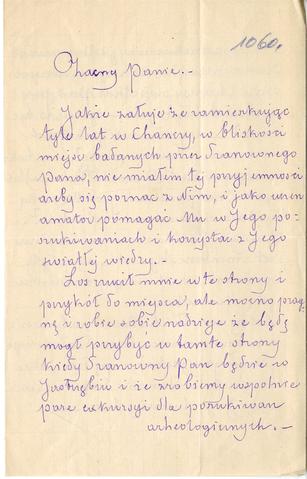 1060.
Zacny Panie.-
Jakże żałuję że zamieszkując
tyle lat w Chancry, w bliskości
miejsc badanych przez Szanownego
Pana, nie miałem tej przyjemności
ażeby się poznać z Nim, i jako uczeń
amator pomagać Mu w Jego po-
szukiwaniach i korzystać z Jego
światłej wiedzy.-
Los rzucił mnie w te strony i
przykół do miejsca, ale mocno prag-
nę i robię sobie nadzieję że będę
mógł przybyć w tamte strony
kiedy Szanowny Pan będzie w
Jastrzębiu i że zrobiemy wspólnie
parę exkursyi dla poszukiwań
archeologicznych.-